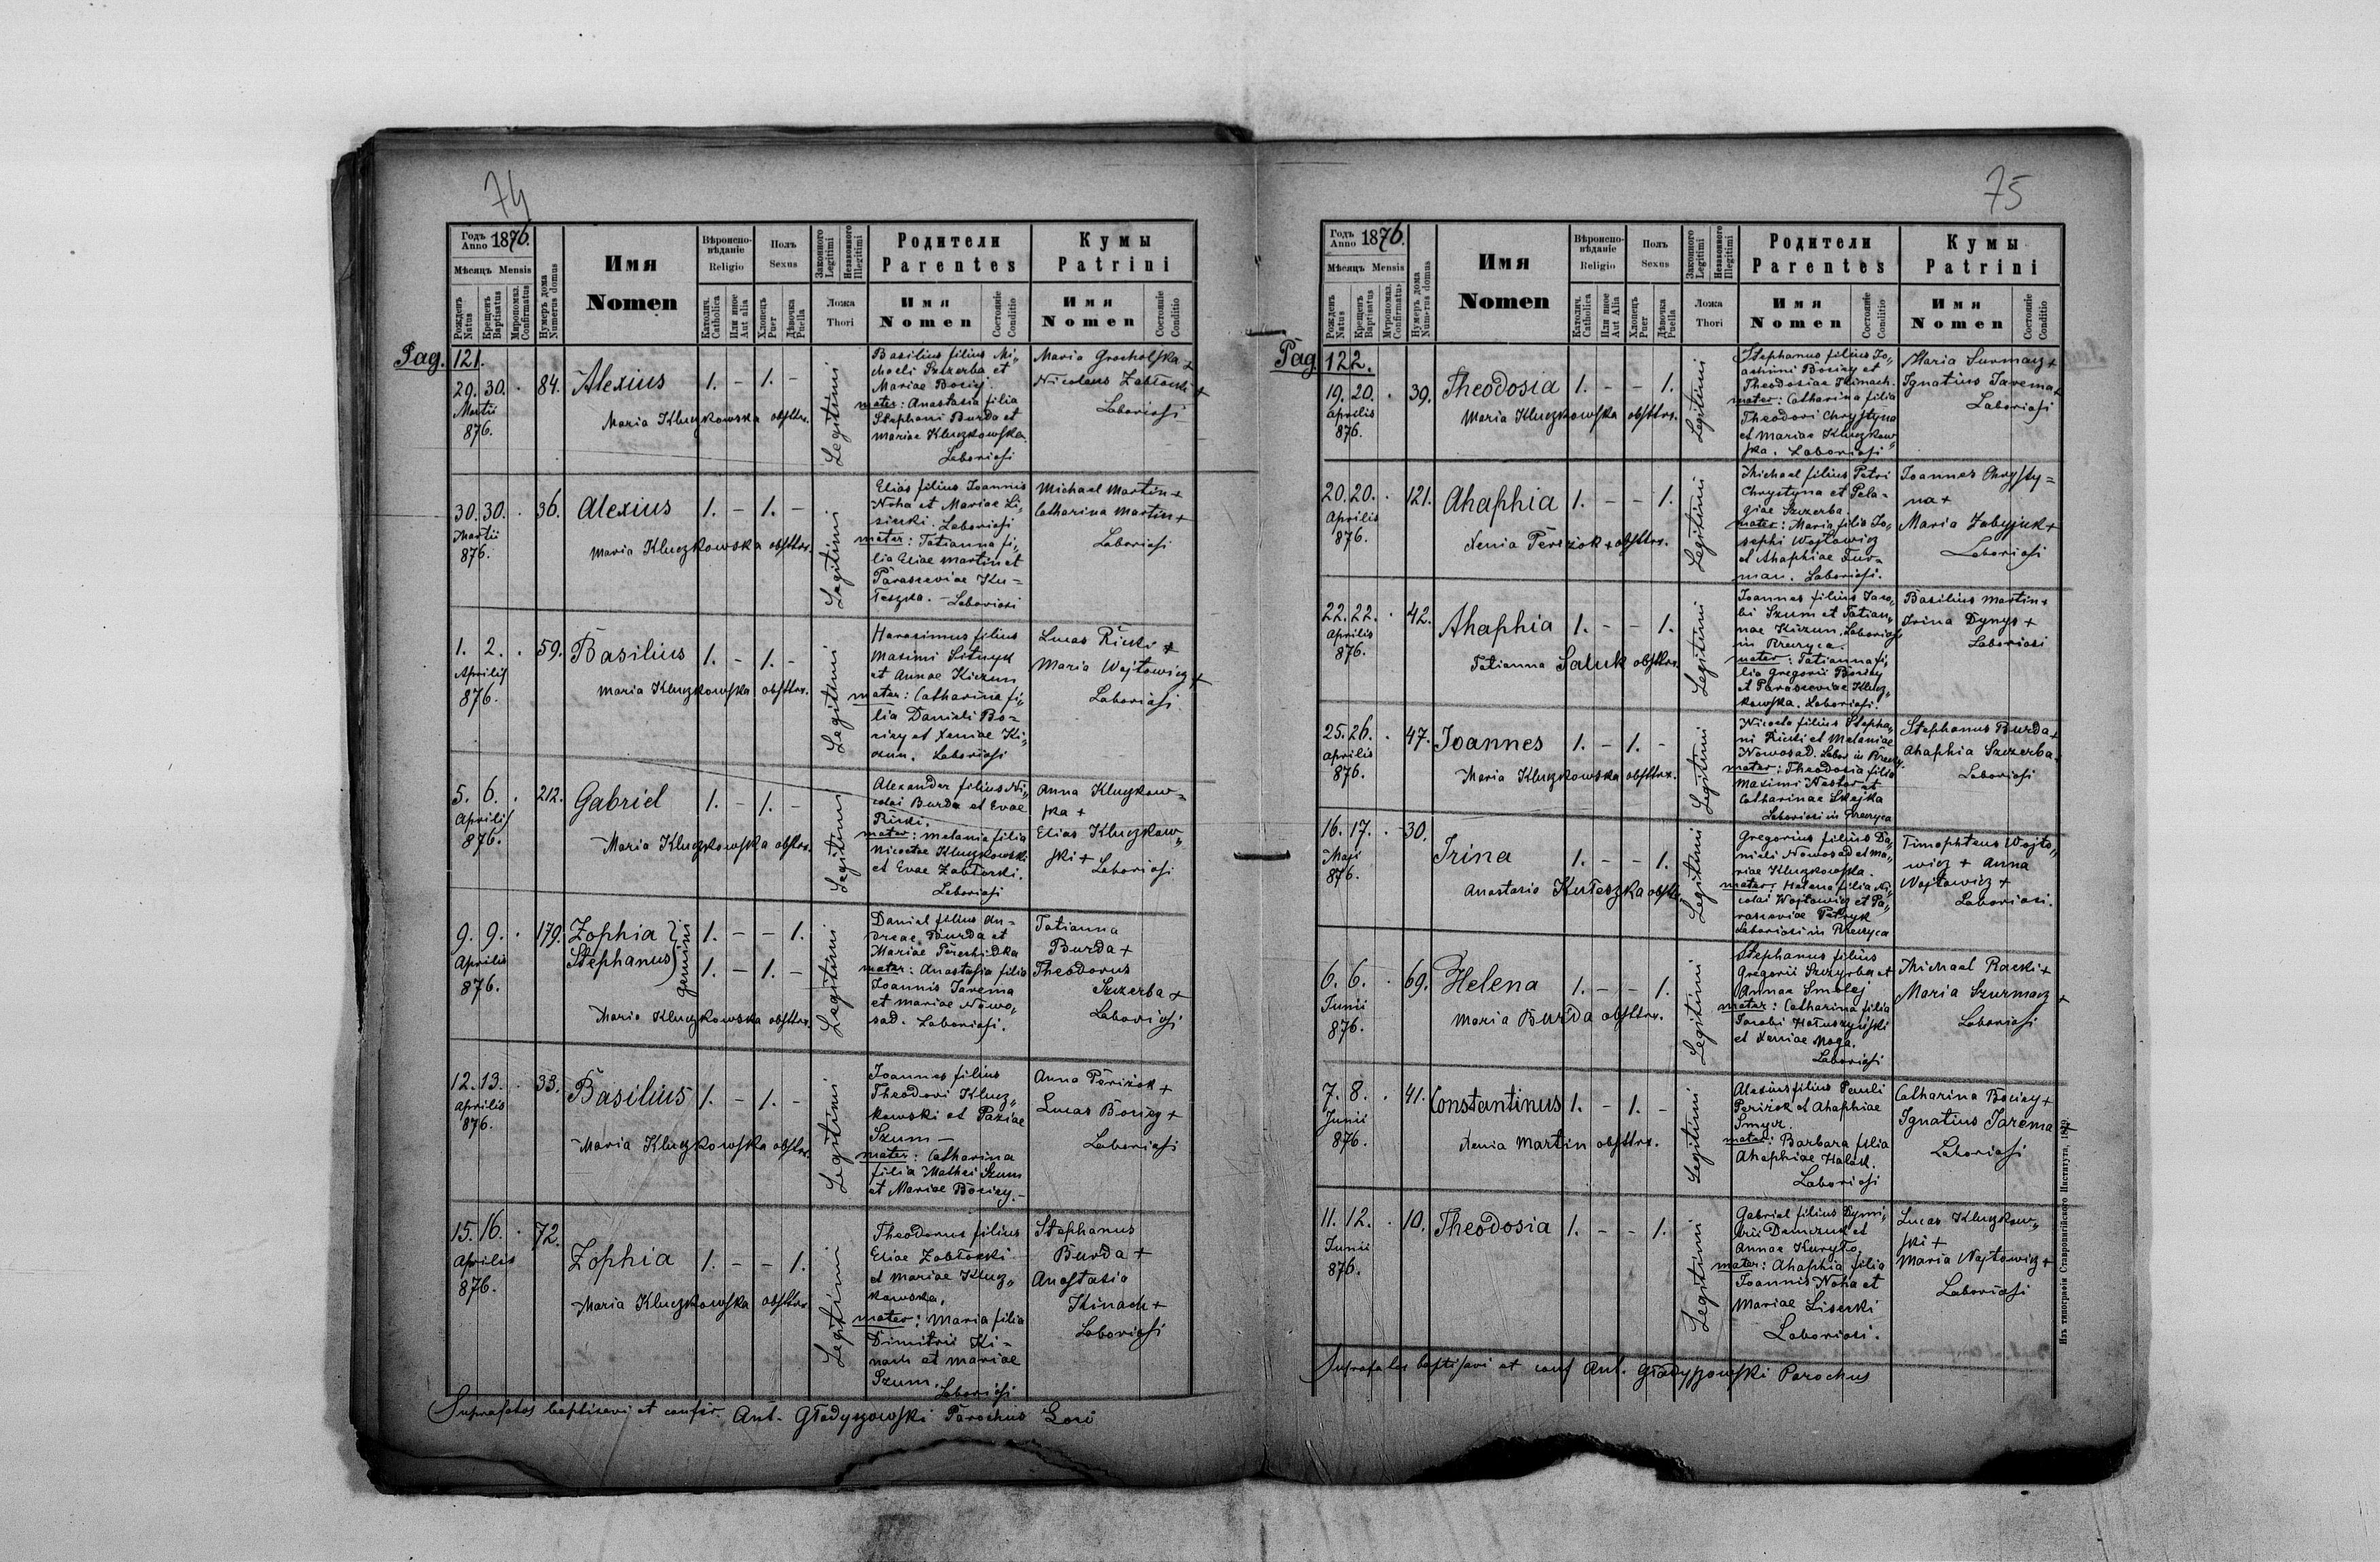 74
Годъ
Anno 1876.
Мѣсяцъ Mensis
Рожденъ
Natus
Крещенъ
Baptisatus
Миропомаз.
Confirmatus
Нумеръ дома
Numerus domus
Имя
Nomen
Вѣроиспо-
вѣданіе
Religio
Католич.
Catholica
Или иное
Aut alia
Полъ
Sexus
Хлопецъ
Puer
Дѣвочка
Puella
Законного
Legitimi
Незаконного
Illegitimi
Ложа
Thori
Родители
Parentes
Имя
Nomen
Состояніе
Conditio
Кумы
Patrini
Имя
Nomen
Состояніе
Conditio
Pag. 121.
29. 30. . 84. Alexius 1. - 1. -
Martii
876.
Maria Kluczkowska obsttrx.
Legitimi
Basilius filius Mi„
chaeli Szczerba et
Mariae Bociej.
mater: Anastasia filia
Stephani Burda et
Mariae Kluczkowska.
Laboriosi
Maria Grocholska +
Nicolaus Zabłocki +
Laboriosi
30. 30. . 36. Alexius 1. - 1. -
Martii
876.
Maria Kluczkowska obsttrx.
Legitimi
Elias filius Joannis
Noha et Mariae Li„
siecki. Laboriosi
mater: Tatianna fi„
lia Eliae Martin et
Parasceviae Ku=
łeszka. - Laboriosi
Michael Martin +
Catharina Martin +
Laboriosi
1. 2. . 59. Basilius 1. - 1. -
Aprilis
876.
Maria Kluczkowska obsttrx.
Legitimi
Harasimus filius
Maximi Sitnyk
et Annae Kiczun
mater: Catharina fi„
lia Danieli Bo=
ciey et Xeniae Ki„
czun. Laboriosi
Lucas Ricki +
Maria Wojtowicz +
Laboriosi
5. 6. . 212. Gabriel 1. - 1. -
Aprilis
876.
Maria Kluczkowska obsttrx.
Legitimi
Alexander filius Ni„
colai Burda et Evae
Ricki.
mater: Melania filia
Nicoetae Kluczkowski
et Evae Zabłocki.
Laboriosi
Anna Kluczkow=
ska +
Elias Kluczkow„
ski + Laboriosi
9. 9. . 179. Zophia 1. - - 1.
Stephanus 1. - 1. -
gemini
Aprilis
876.
Maria Kluczkowska obsttrx.
Legitimi
Daniel filius An=
dreae Burda et
Mariae Pereshidka
mater: Anastasia filia
Joannis Jarema
et Mariae Nowo„
sad. Laboriosi.
Tatianna
Burda +
Theodorus
Szczerba +
Laboriosi
12. 13. . 33. Basilius 1. - 1. -
Aprilis
876.
Maria Kluczkowska obsttrx.
Legitimi
Joannes filius
Theodori Klucz„
kowski et Paziae
Szum -
mater: Catharina
filia Mathei Szum
et Mariae Bociey. -
Anna Periżok +
Lucas Bociey +
Laboriosi
15. 16. . 72. Zophia 1. - - 1.
Aprilis
876.
Maria Kluczkowska obsttrx.
Legitimi
Theodorus filius
Eliae Zabłocki
et Mariae Klucz„
kowska,
mater: Maria filia
Dimitrii Ki=
nach et Mariae
Szum. Laboriosi
Stephanus
Burda +
Anastasia
Kinach +
Laboriosi
Suprafatos baptisavi et confir. Ant. Gładyszowski Parochus Loci
75
Годъ
Anno 1876.
Мѣсяцъ Mensis
Рожденъ
Natus
Крещенъ
Baptisatus
Миропомаз.
Confirmatus
Нумеръ дома
Numerus domus
Имя
Nomen
Вѣроиспо-
вѣданіе
Religio
Католич.
Catholica
Или иное
Aut Alia
Полъ
Sexus
Хлопецъ
Puer
Дѣвочка
Puella
Законного
Legitimi
Незаконного
Illegitimi
Ложа
Thori
Родители
Parentes
Имя
Nomen
Состояніе
Conditio
Кумы
Patrini
Имя
Nomen
Состояніе
Conditio
Pag 122.
19. 20. . 39. Theodosia 1. - - 1.
Aprilis
876.
Maria Kluczkowska obsttrx.
Legitimi
Stephanus filius Jo„
achimi Bociey et
Theodosiae Klimach.
mater: Catharina filia
Theodori Chrystyna
et Mariae Kluczkow„
ska. Laboriosi
Maria Surmacz +
Ignatius Jarema +
Laboriosi
20. 20. . 121. Ahaphia 1. - - 1.
Aprilis
876.
Xenia Periżok + obsttrx.
Legitimi
Michael filius Petri
Chrystyna et Pela-
giae Szczerba.
mater: Maria filia Jo„
sephi Wojtowicz
et Ahaphiae Fur-
man. Laboriosi.
Joannes Chrysty=
na +
Maria Zabyjuk +
Laboriosi
22. 22. . 42. Ahaphia 1. - - 1.
Aprilis
876.
Tatianna Saluk obsttrx.
Legitimi
Joannes filius Jaco„
bi Szum et Tatian„
nae Kiczun. Laboriosi
in Rzeczyca.
mater: Tatianna fi„
lia Gregorii Bociey
et Parasceviae Klucz„
kowska. Laboriosi.
Basilius Martin +
Irina Dynys +
Laboriosi
25. 26. . 47. Joannes 1. - 1. -
Aprilis
876.
Maria Kluczkowska obsttrx.
Legitimi
Nicoela filius Stepha„
ni Ricki et Melaniae
Nowosad. Labor in Rzeczy.
mater: Theodosia filia
Maximi Nestor et
Catharinae Skejka
Laboriosi in Rzeczyca
Stephanus Burda +
Ahaphia Szczerba
Laboriosi
16. 17. . 30. Irina 1. - - 1.
Maji
876.
Anastasia Kułeszka obsttr.
Legitimi
Gregorius filius Da„
nieli Nowosad et Ma„
riae Kluczkowska.
mater: Helena filia Ni„
colai Wojtowicz et Pa„
rasceviae Petryk
Laboriosi in Rzeczyca
Timophteus Wojto„
wicz + Anna
Wojtowicz +
Laboriosi.
6. 6. . 69. Helena 1. - - 1.
Junii
876.
Maria Burda obsttrx.
Legitimi
Stephanus filius
Gregorii Szczyrba et
Annae Smolej
mater: Catharina filia
Jacobi Hałuszyński
et Xeniae Noga.
Laboriosi
Michael Racki +
Maria Szurmacz +
Laboriosi
7. 8. . 41. Constantinus 1. - 1. -
Junii
876.
Xenia Martin obsttrx.
Legitimi
Alexius filius Pauli
Periżok et Ahaphiae
Smyk.
mater: Barbara filia
Ahaphiae Halach.
Laboriosi
Catharina Bociey +
Ignatius Jarema +
Laboriosi
11. 12. . 10. Theodosia 1. - - 1.
Junii
876.
Legitimi
Gabriel filius Dymi„
trii Demczuk et
Annae Kuryło,
mater: Ahaphia filia
Joannis Noha et
Mariae Lisecki
Laboriosi.
Lucas Kluczkow„
ski +
Maria Wojtowicz +
Laboriosi
Suprafatos baptisavi et conf Ant. Gładyszowski Parochus
Изъ типографіи Ставропигійского Института,